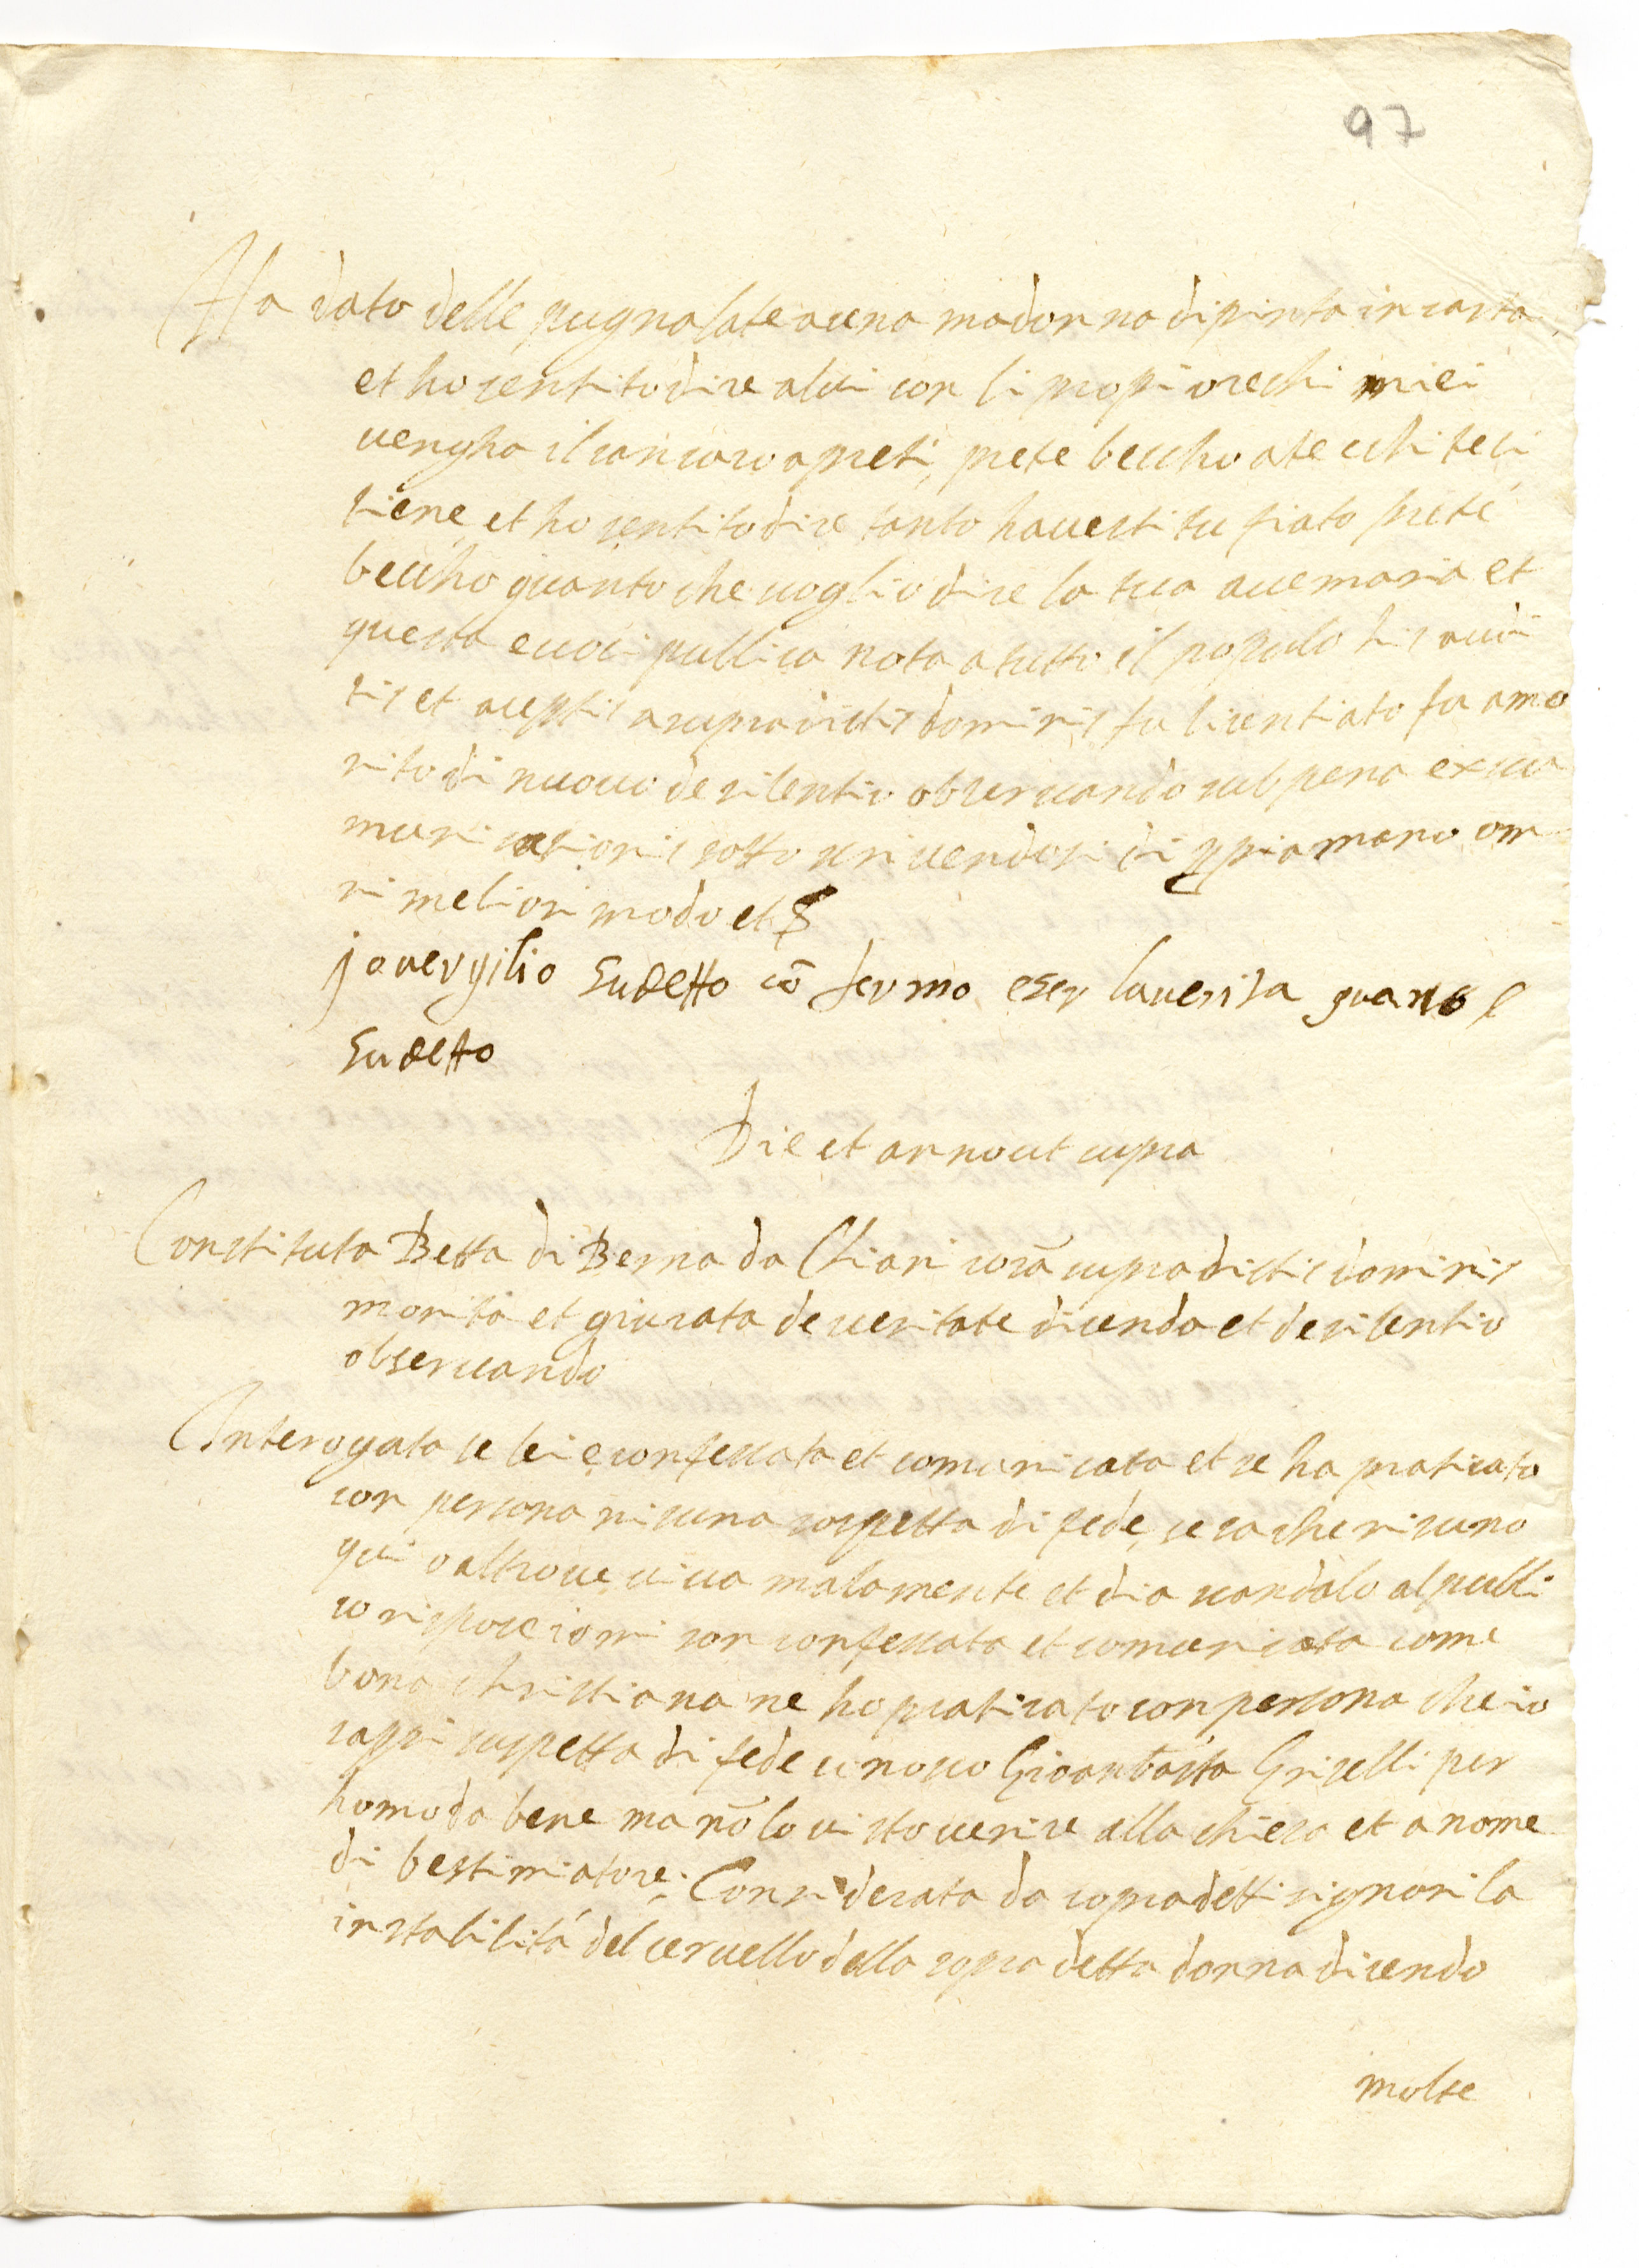 97
Ha dato delle pugnalate a una madonna dipinta in carta
et ho sentito dire a lui con li propi orechi miei
vengha il cancaro a preti, prete beccho a te e chi te ci
tiene, et ho sentito dire tanto havesti tu fiato prete
beccho quanto che voglio dire la tua avemaria et
questa e voci publica nota a tutto il populo his audi
tis et aceptis a supradictis dominis fu licentiato fu amo
nito di nuovo de silentio observando sub pena excu
municationis sotto scrivendosi di ppia mano om
ni meliori modo et
jo vergilio sudetto cō fermo eser la verita quanto
sudetto
Die et anno ut supra
Constituta Betta di Berna da Chiari corā supradictis dominis
monita et giurata de veritate dicenda et de silentio
observando
Interogata se lei e confessata et comunicata et se ha praticato
con persona nisuna sospetta di fede, se sa che nisuno
qui o altrove viva malamente et dia scandalo al publi
co rispose io mi son confessata et comunicata come
bona christiana ne ho praticato con persona che io
sappi suspetta di fede conosco Gioanbāsta Griselli per
homo da bene ma nō lo visto venire alla chiesa et a nome
di bestimiatore; Considerata da sopradetti signori la
instabilità del cervello della sopra detta donna dicendo
molte